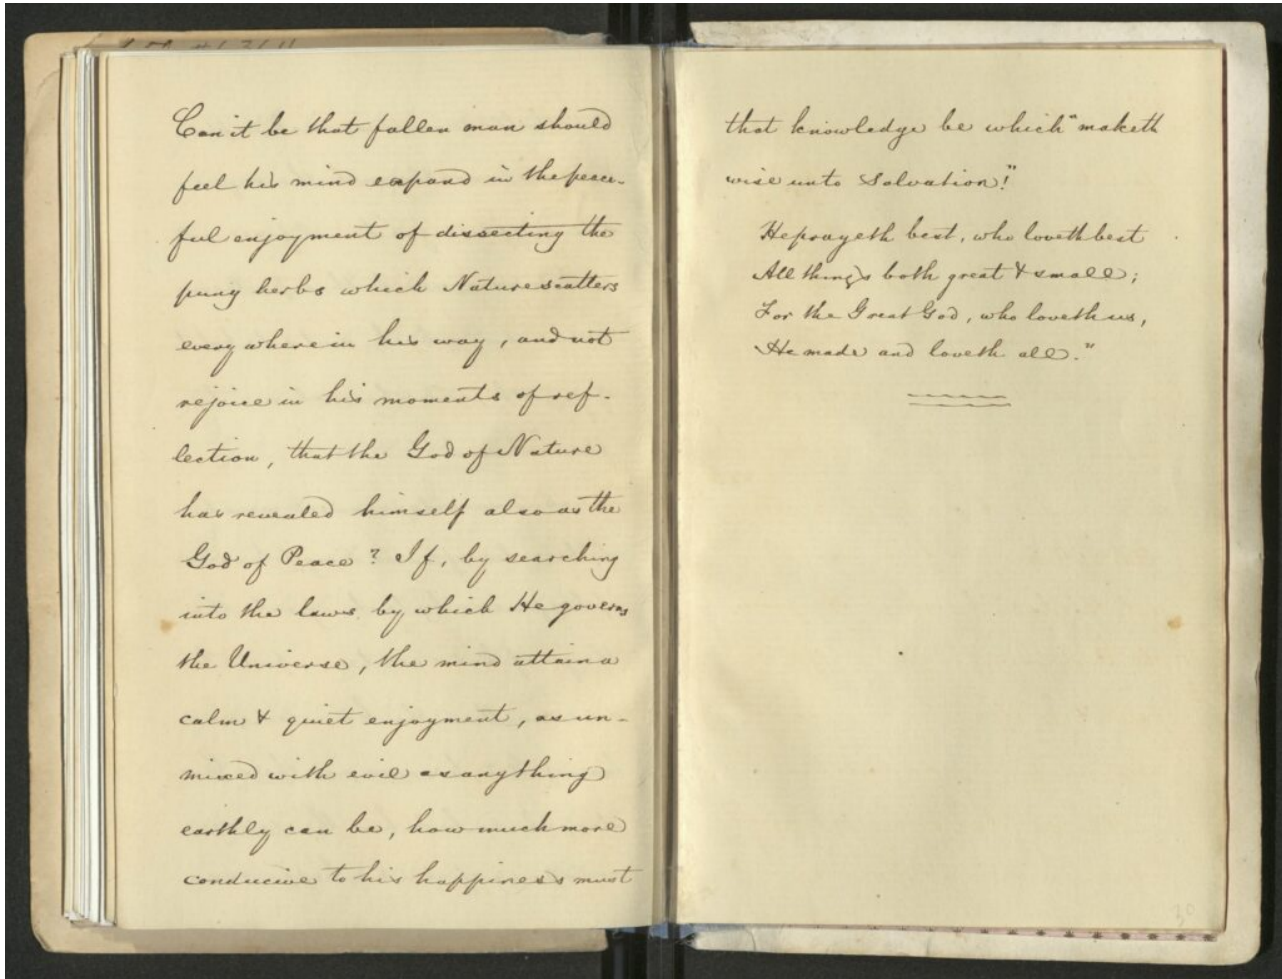 Can it be that fallen man should
feel his mind expand in the peace-
ful enjoyment of dissecting the
puny herbs which Nature scatters
every where in his way, and not
rejoice in his moments of ref-
lection, that the God of Nature
has revealed himself also as the
God of Peace? If, by searching
into the laws by which He governs
the Universe, the mind attain a
calm & quiet enjoyment, as un-
mixed with evil as anything
earthly can be, how much more
conducive to his happiness must
that knowledge be which "maketh
wise unto Salvation!"
He prayeth best, who loveth best
All things both great & small;
For the Great God, who loveth us,
He made and loveth all."
30